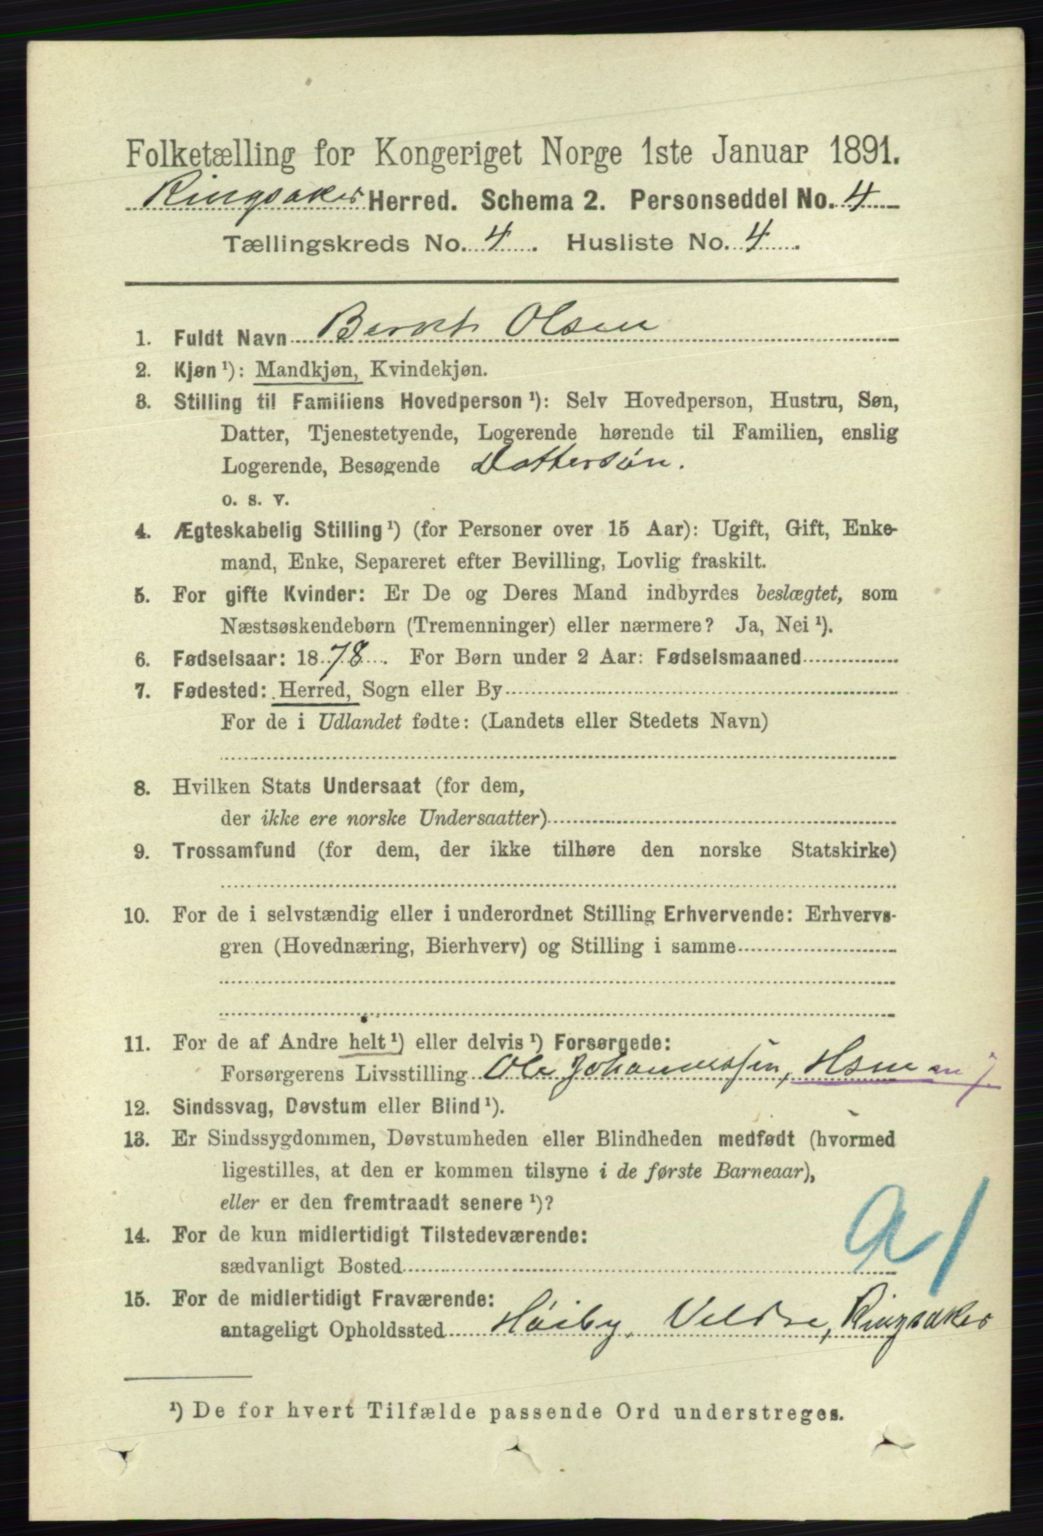 Folketælling for Kongeriget Norge 1ste Januar 1891.
Ringsaker Herred. Schema 2. Personseddel No. 4
Tællingskreds No. 4. Husliste No. 4.
1. Fuldt Navn Bernt Olsen
2. Kjøn ¹): Mandkjøn, Kvindekjøn.
3. Stilling til Familiens Hovedperson ¹): Selv Hovedperson, Hustru, Søn,
Datter, Tjenestetyende, Logerende hørende til Familien, enslig
Logerende, Besøgende Dattersøn.
o. s. v.
4. Ægteskabelig Stilling ¹) (for Personer over 15 Aar): Ugift, Gift, Enke-
mand, Enke, Separeret efter Bevilling, Lovlig fraskilt.
5. For gifte Kvinder: Er De og Deres Mand indbyrdes beslægtet, som
Næstsøskendebørn (Tremenninger) eller nærmere? Ja, Nei ¹).
6. Fødselsaar: 1878. For Børn under 2 Aar: Fødselsmaaned
7. Fødested: Herred, Sogn eller By
For de i Udlandet fødte: (Landets eller Stedets Navn)
8. Hvilken Stats Undersaat (for dem,
der ikke ere norske Undersaatter)
9. Trossamfund (for dem, der ikke tilhøre den norske Statskirke)
10. For de i selvstændig eller i underordnet Stilling Erhvervende: Erhvervs-
gren (Hovednæring, Bierhverv) og Stilling i samme
11. For de af Andre helt ¹) eller delvis ¹) Forsørgede:
Forsørgerens Livsstilling Ole Johannessen, Hsmanj
12. Sindssvag, Døvstum eller Blind ¹).
13. Er Sindssygdommen, Døvstumheden eller Blindheden medfødt (hvormed
ligestilles, at den er kommen tilsyne i de første Barneaar),
eller er den fremtraadt senere ¹)?
14. For de kun midlertidigt Tilstedeværende:
sædvanligt Bosted
91
15. For de midlertidigt Fraværende:
antageligt Opholdssted Høiby, Veldre, Ringsaker
¹) De for hvert Tilfælde passende Ord understreges.